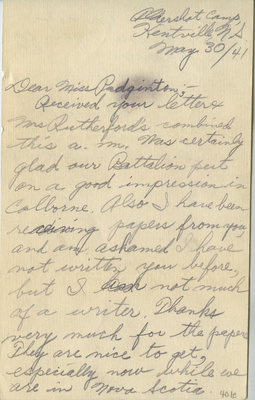 Aldershot Camp
Kentville N.S
May 30/41
Dear Miss Padginton;-
Received your letter &
Mrs Rutherford's combined
this a.m. Was certainly
glad our Battalion put
on a good impression in
Colborne. Also I have been
receiving papers from you
and am ashamed I have
not written you before,
but I am not much
of a writer. Thanks
very much for the paper
They are nice to get,
especially now while we
are in Nova Scotia.